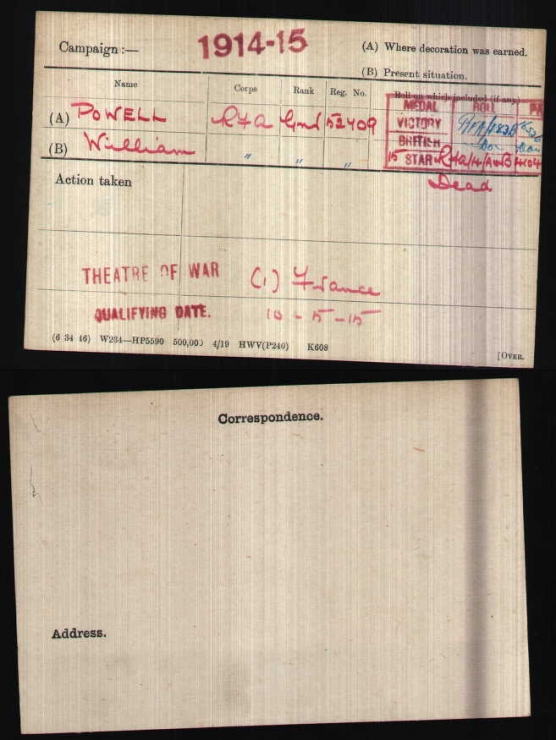 Campaign :— 1914-15 (A) Where decoration was earned.
(B) Present situation.
Name Corps Rank Reg. No. Roll on which included (if any)
MEDAL ROLL
(A) POWELL RFA Gnr 52409 VICTORY
(B) William " " " BRITISH Do Do
15 STAR RFA/14/
Action taken Dead
THEATRE OF WAR (1) France
QUALIFYING DATE. 10-5-15
(6 34 46) W234—HP5590 500,000 4/19 HWV(P240) K608
[OVER.
Correspondence.
Address.